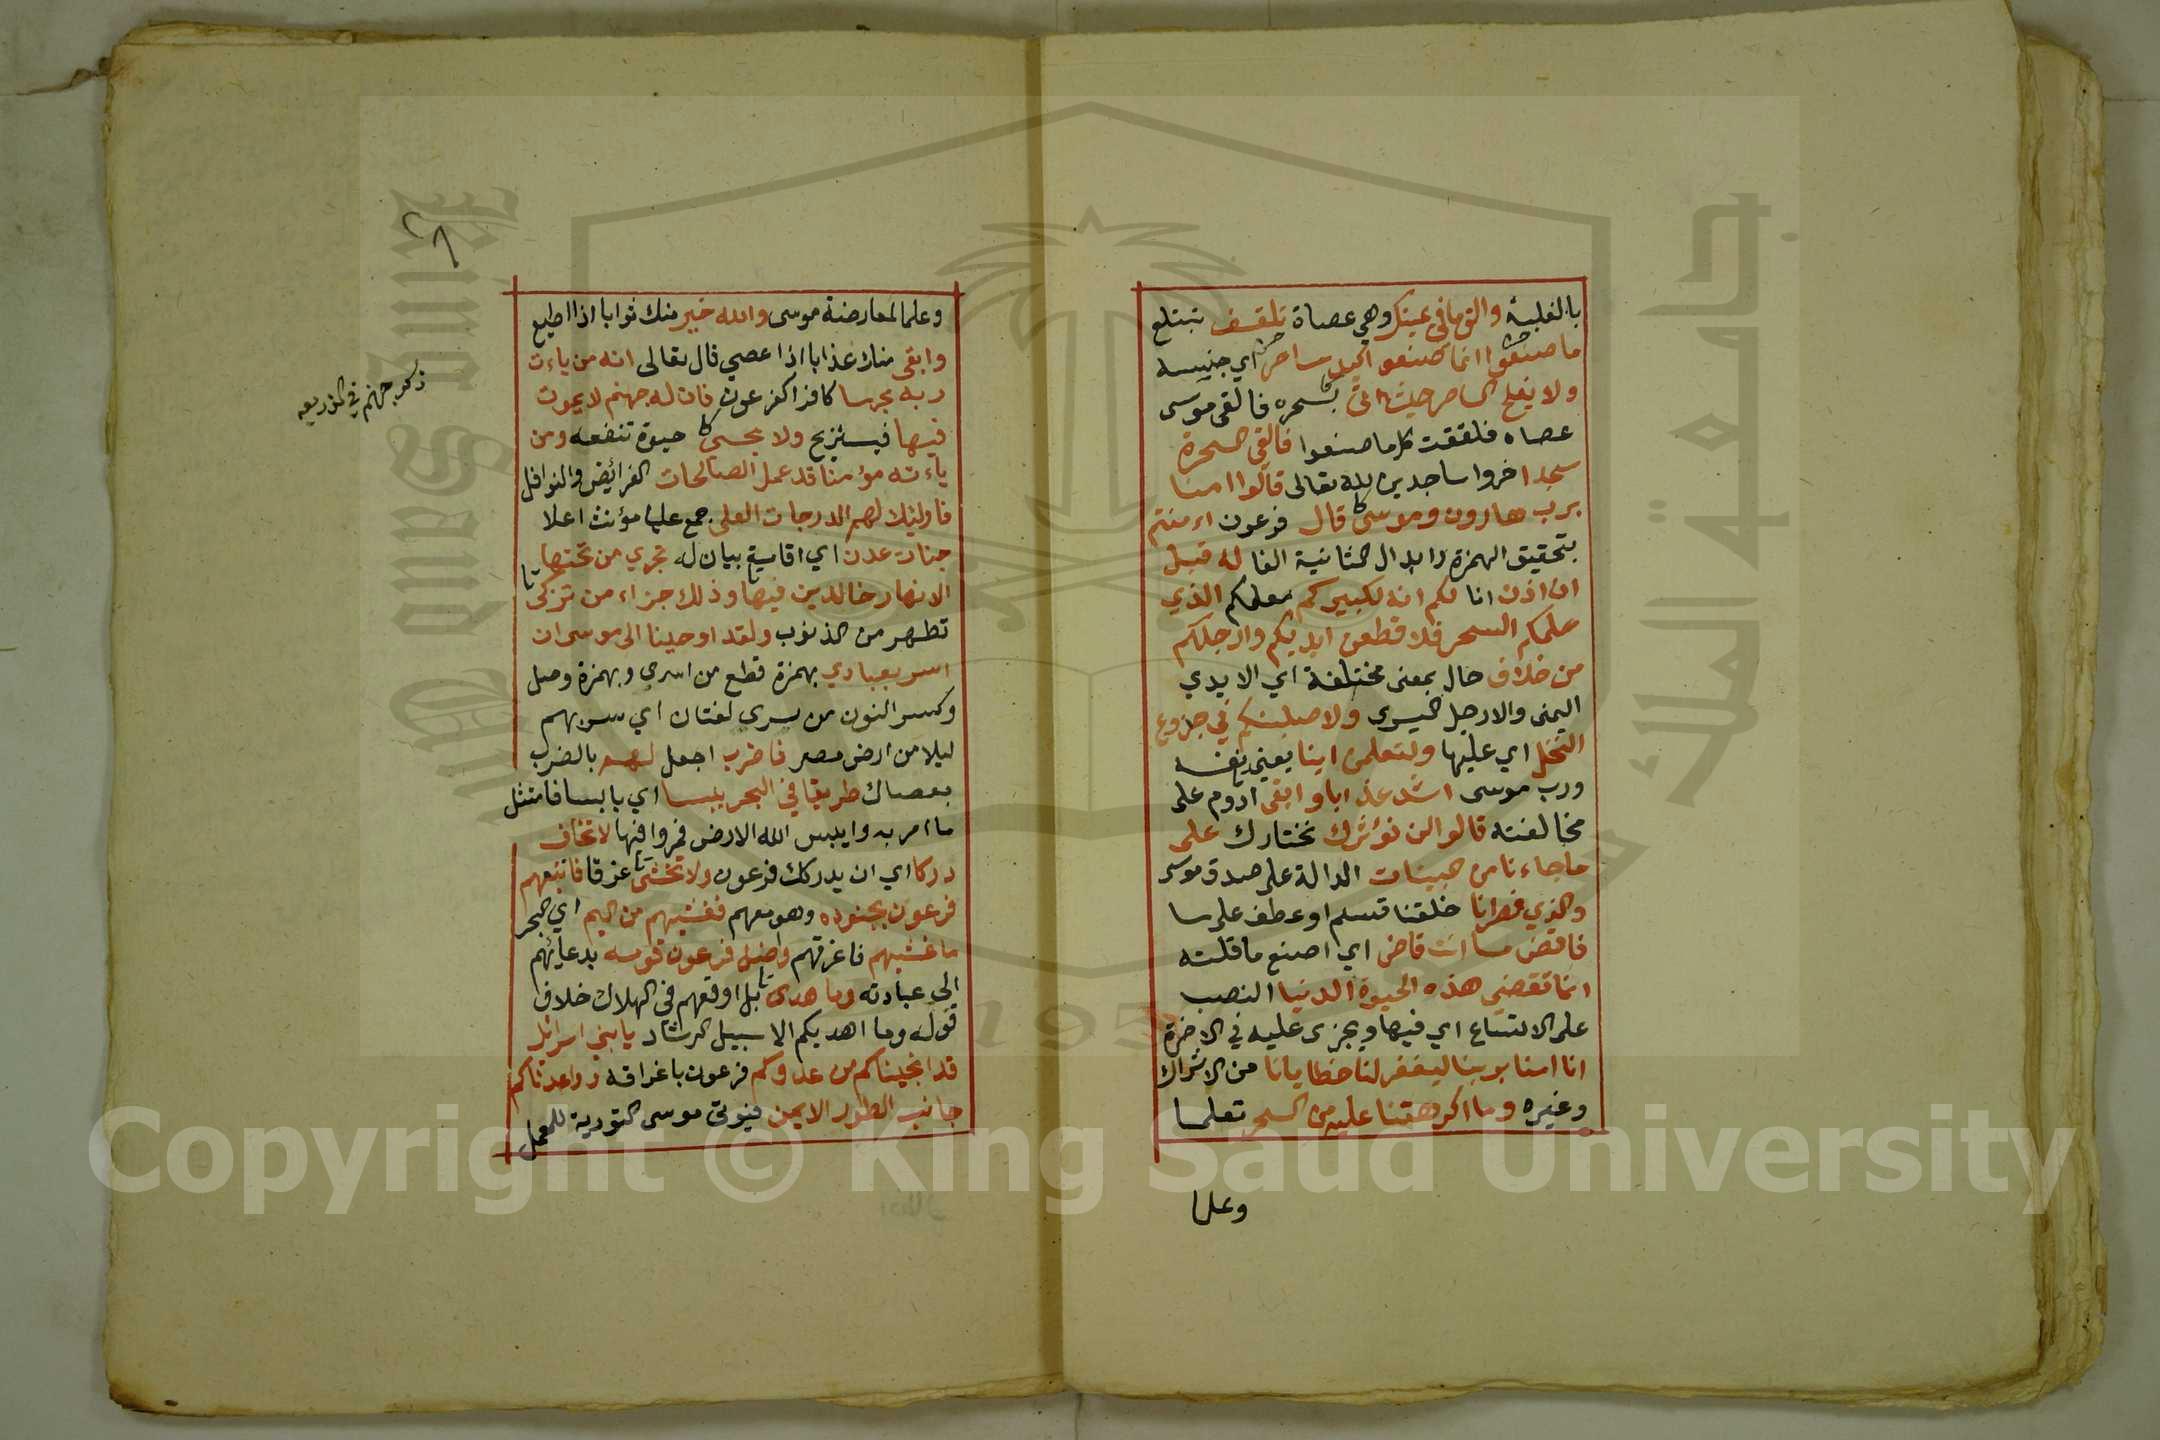 بالغلبة والق ما في يمينك وهي عصاة تلقف تبتلع
ما صنعوا انما صنعوا كيد ساحر اي جنسه
ولا يفلح الساحر حيث اتى بسحره فالقى موسى
عصاه فلقفت كلما صنعوا فالقي السحرة
سجدا خروا ساجدين لله تعالى قالوا امنا
برب هارون وموسى قال فرعون اءمنتم
بتحقيق الهمزة وابدال الثانية الفا له قبل
ان اذن انا لكم انه لكبيركم معلمكم الذي
علمكم السحر فلا قطعن ايديكم وارجلكم
من خلاف حال بمعنى مختلفة اي الايدي
اليمنى والارجل اليسرى ولاصلبنكم في جزوع
النخل اي عليها ولتعلمن اينا يعني نفسه
ورب موسى اشد عذابا وابقى ادوم على
مخالفته قالوا لن نؤثرك نختارك على
ما جاءنا من البينات الدالة على صدق موسى
والذي فطرنا خلقنا قسم او عطف على ما
فاقض ما انت قاض اي اصنع ما قلته
انما تقضي هذه الحيوة الدنيا النصب
على الاتساع اي فيها ويجزى عليه في الاخرة
انا امنا بربنا ليغفر لنا خطايانا من الاشراك
وغيره وما اكرهتنا عليه من السحر تعلما
وعلما
٢٨
وعلما لمعارضة موسى والله خير منك ثوابا اذا اطيع
وابقى منك عذابا اذا عصي قال تعالى انه من ياءت
ربه مجرما كافرا كفرعون فان له جهنم لا يموت
فيها فيستريح ولا يحيى حيوة تنفعه ومن
ياءته مؤمنا قد عمل الصالحات الفرائض والنوافل
فاوليك لهم الدرجات العلى جمع عليا مؤنث اعلا
جنات عدن اي اقامة بيان له تجري من تحتها
الانهار خالدين فيها وذلك جزاء من تزكى
تطهر من الذنوب ولقد اوحينا الى موسى ان
اسر بعبادي بهمزة قطع من اسرى وبهمزة وصل
وكسر النون من سرى لغتان اي سر بهم
ليلا من ارض مصر فاضرب اجعل لهم بالضرب
بعصاك طريقا في البحر يبسا اي يابسا فامتثل
ما امر به وايبس الله الارض فمروا فيها لا تخاف
دركا اي ان يدركك فرعون ولا تخشى غرقا فاتبعهم
فرعون بجنوده وهو معهم فغشيهم من اليم اي البحر
ما غشيهم فاغرقهم واضل فرعون قومه بدعائهم
الى عبادته وما هدى بل اوقعهم في الهلاك خلاف
قوله وما اهديكم الا سبيل الرشاد يا بني اسرائيل
قد انجيناكم من عدوكم فرعون باغراقه وواعدناكم
جانب الطور الايمن فنوتي موسى التورية للعمل
ذكر جهنم في
Copyright © King Saud University
King Saud University
جامعة الملك سعود
1957